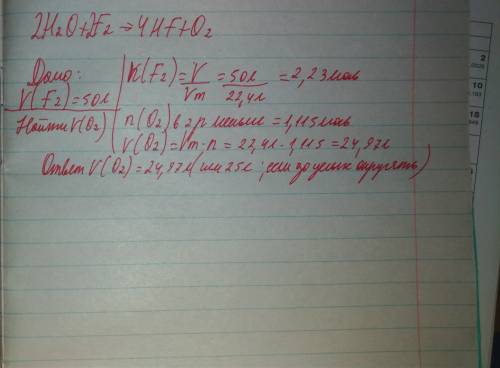 2H₂O+2F₂→4HF+O₂
Дано:
V(F₂)=50л
Найти V(O₂)
n(F₂)=V/Vm=50л/22,4л=2,23моль
n(O₂) в 2 р меньше=1,115моль
V(O₂)=Vm·n=22,4л·1,115=24,97л
Ответ V(O₂)=24,97л(или 25л; если до целых округлять)
2
10
18